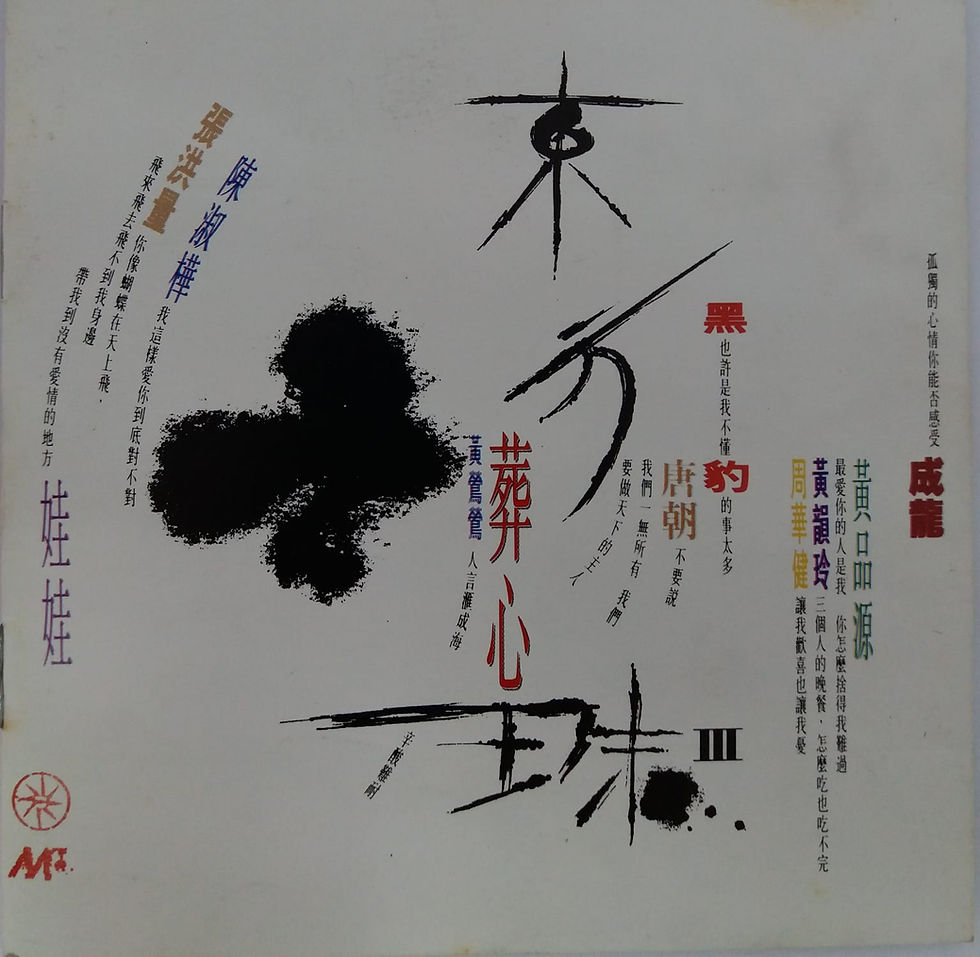 東方明珠
III
成龍
孤獨的心情你能否感受
黃品源
最愛你的人是我 你怎麼捨得我難過
黃韻玲
三個人的晚餐,怎麼吃也吃不完
周華健
讓我歡喜也讓我憂
黑豹
也許是我不懂的事太多
唐朝
不要說
我們一無所有 我們
要做天下的主人
葬心
黃鶯鶯
人言滙成海
辛酸難耐
陳淑樺
我這樣愛你到底對不對
張洪量
你像蝴蝶在天上飛,
飛來飛去飛不到我身邊
娃娃
帶我到沒有愛情的地方